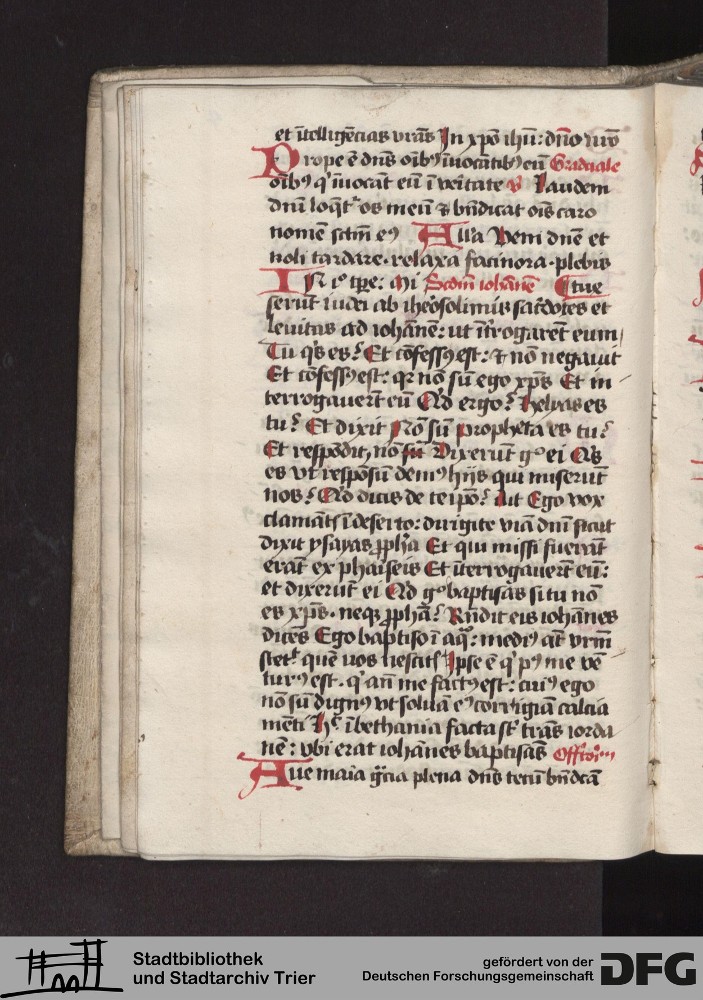 et ītelligēcias vrās In xp̄o ihū: dn̄o nr̄o
Prope ē dn̄s oīb9 īuocātib9 eū Graduale
oīb9 q' īuocāt eū ī veritate v̄ Laudem
dn̄i loq̄t' os meū & bn̄dicat oīs caro
nomē sctm̄ e9 All'a Veni dn̄e et
noli tardare. relaxa facinora. plebis
IN i° tp̄e: Mi Scdm̄ iohānē Ctue
serūt iudei ab iherosolimis sac̄dotes et
leuitas ad iohānē: ut īt̄rogarēt eum
Tu q's es? Et cōfess9 est: & nō negauit
Et cōfess9 est: qr nō sū ego xp̄s Et in
terrogauerūt eū Q'd ergo? helyas es
tu? Et dixit Nō sū propheta es tu?
Et respōdit, nō sū Dixerūt g° ei Q's
es vt respōsū dem9 hijs qui miserūt
nos? Q'd dicis de teip̄o? Ait Ego vox
clamāt̄s ī deserto: dirigite viā dn̄i sicut
dixit ysayas ꝓph̄a Et qui missi fuerāt
erāt ex phariseis Et īterrogauerūt eū:
et dixerūt ei Q'd g° baptisas si tu nō
es xp̄s. neq3 ꝓph̄a? Rn̄dit eis iohānes
dicēs Ego baptiso ī aq̄: medi9 āt vrm̄
stet' quē uos nescitis Ip̄se ē q' p9 me vē
tur9 est. q' an̄ me fact9 est: cui9 ego
nō sū dign9 vt soluā e9 corrigiā calcia
mēti H' ī bethania facta st' trās iorda
nē: vbi erat iohānes baptisās Offr̄o
Aue maīa gr̄cia plena dn̄s tecū bn̄dc̄a
Stadtbibliothek
und Stadtarchiv Trier
gefördert von der
Deutschen Forschungsgemeinschaft
DFG